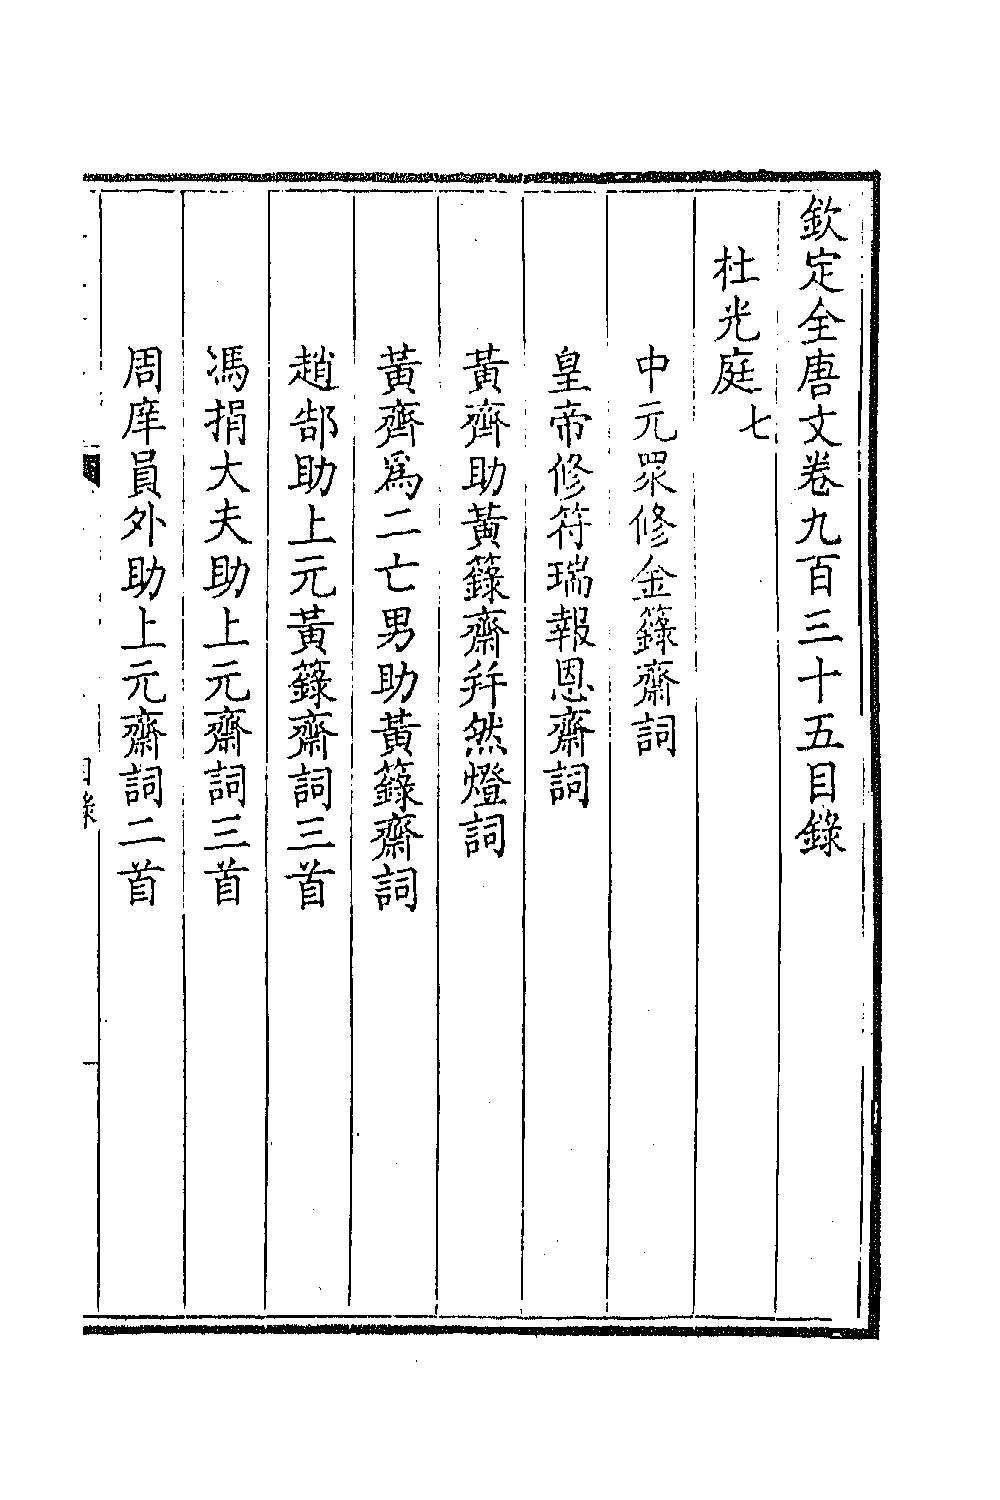 欽定全唐文卷九百三十五目錄
杜光庭七
中元眾修金籙齋詞
皇帝修符瑞報恩齋詞
黃齊助黃籙齋并然燈詞
黃齊爲二亡男助黃籙齋詞
趙郜助上元黃籙齋詞三首
馮捐大夫助上元齋詞三首
周庠員外助上元齋詞二首
目錄